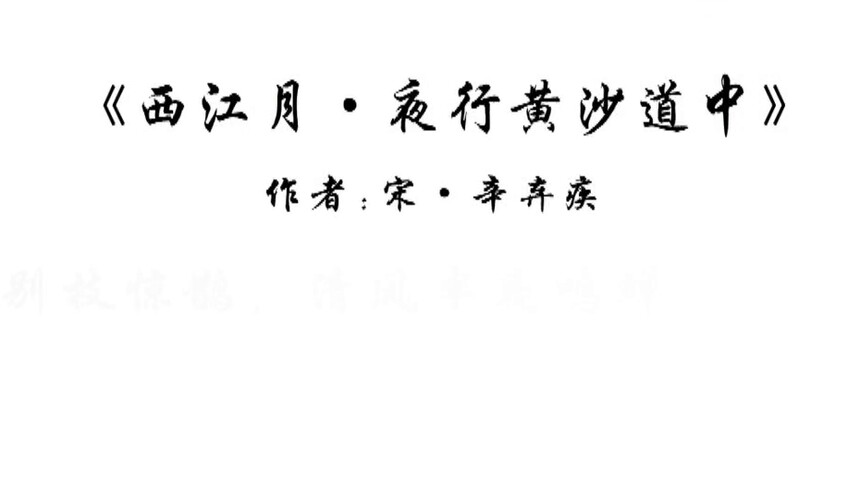 《西江月·夜行黄沙道中》
作者:宋·辛弃疾
别枝惊鹊,清风半夜鸣蝉